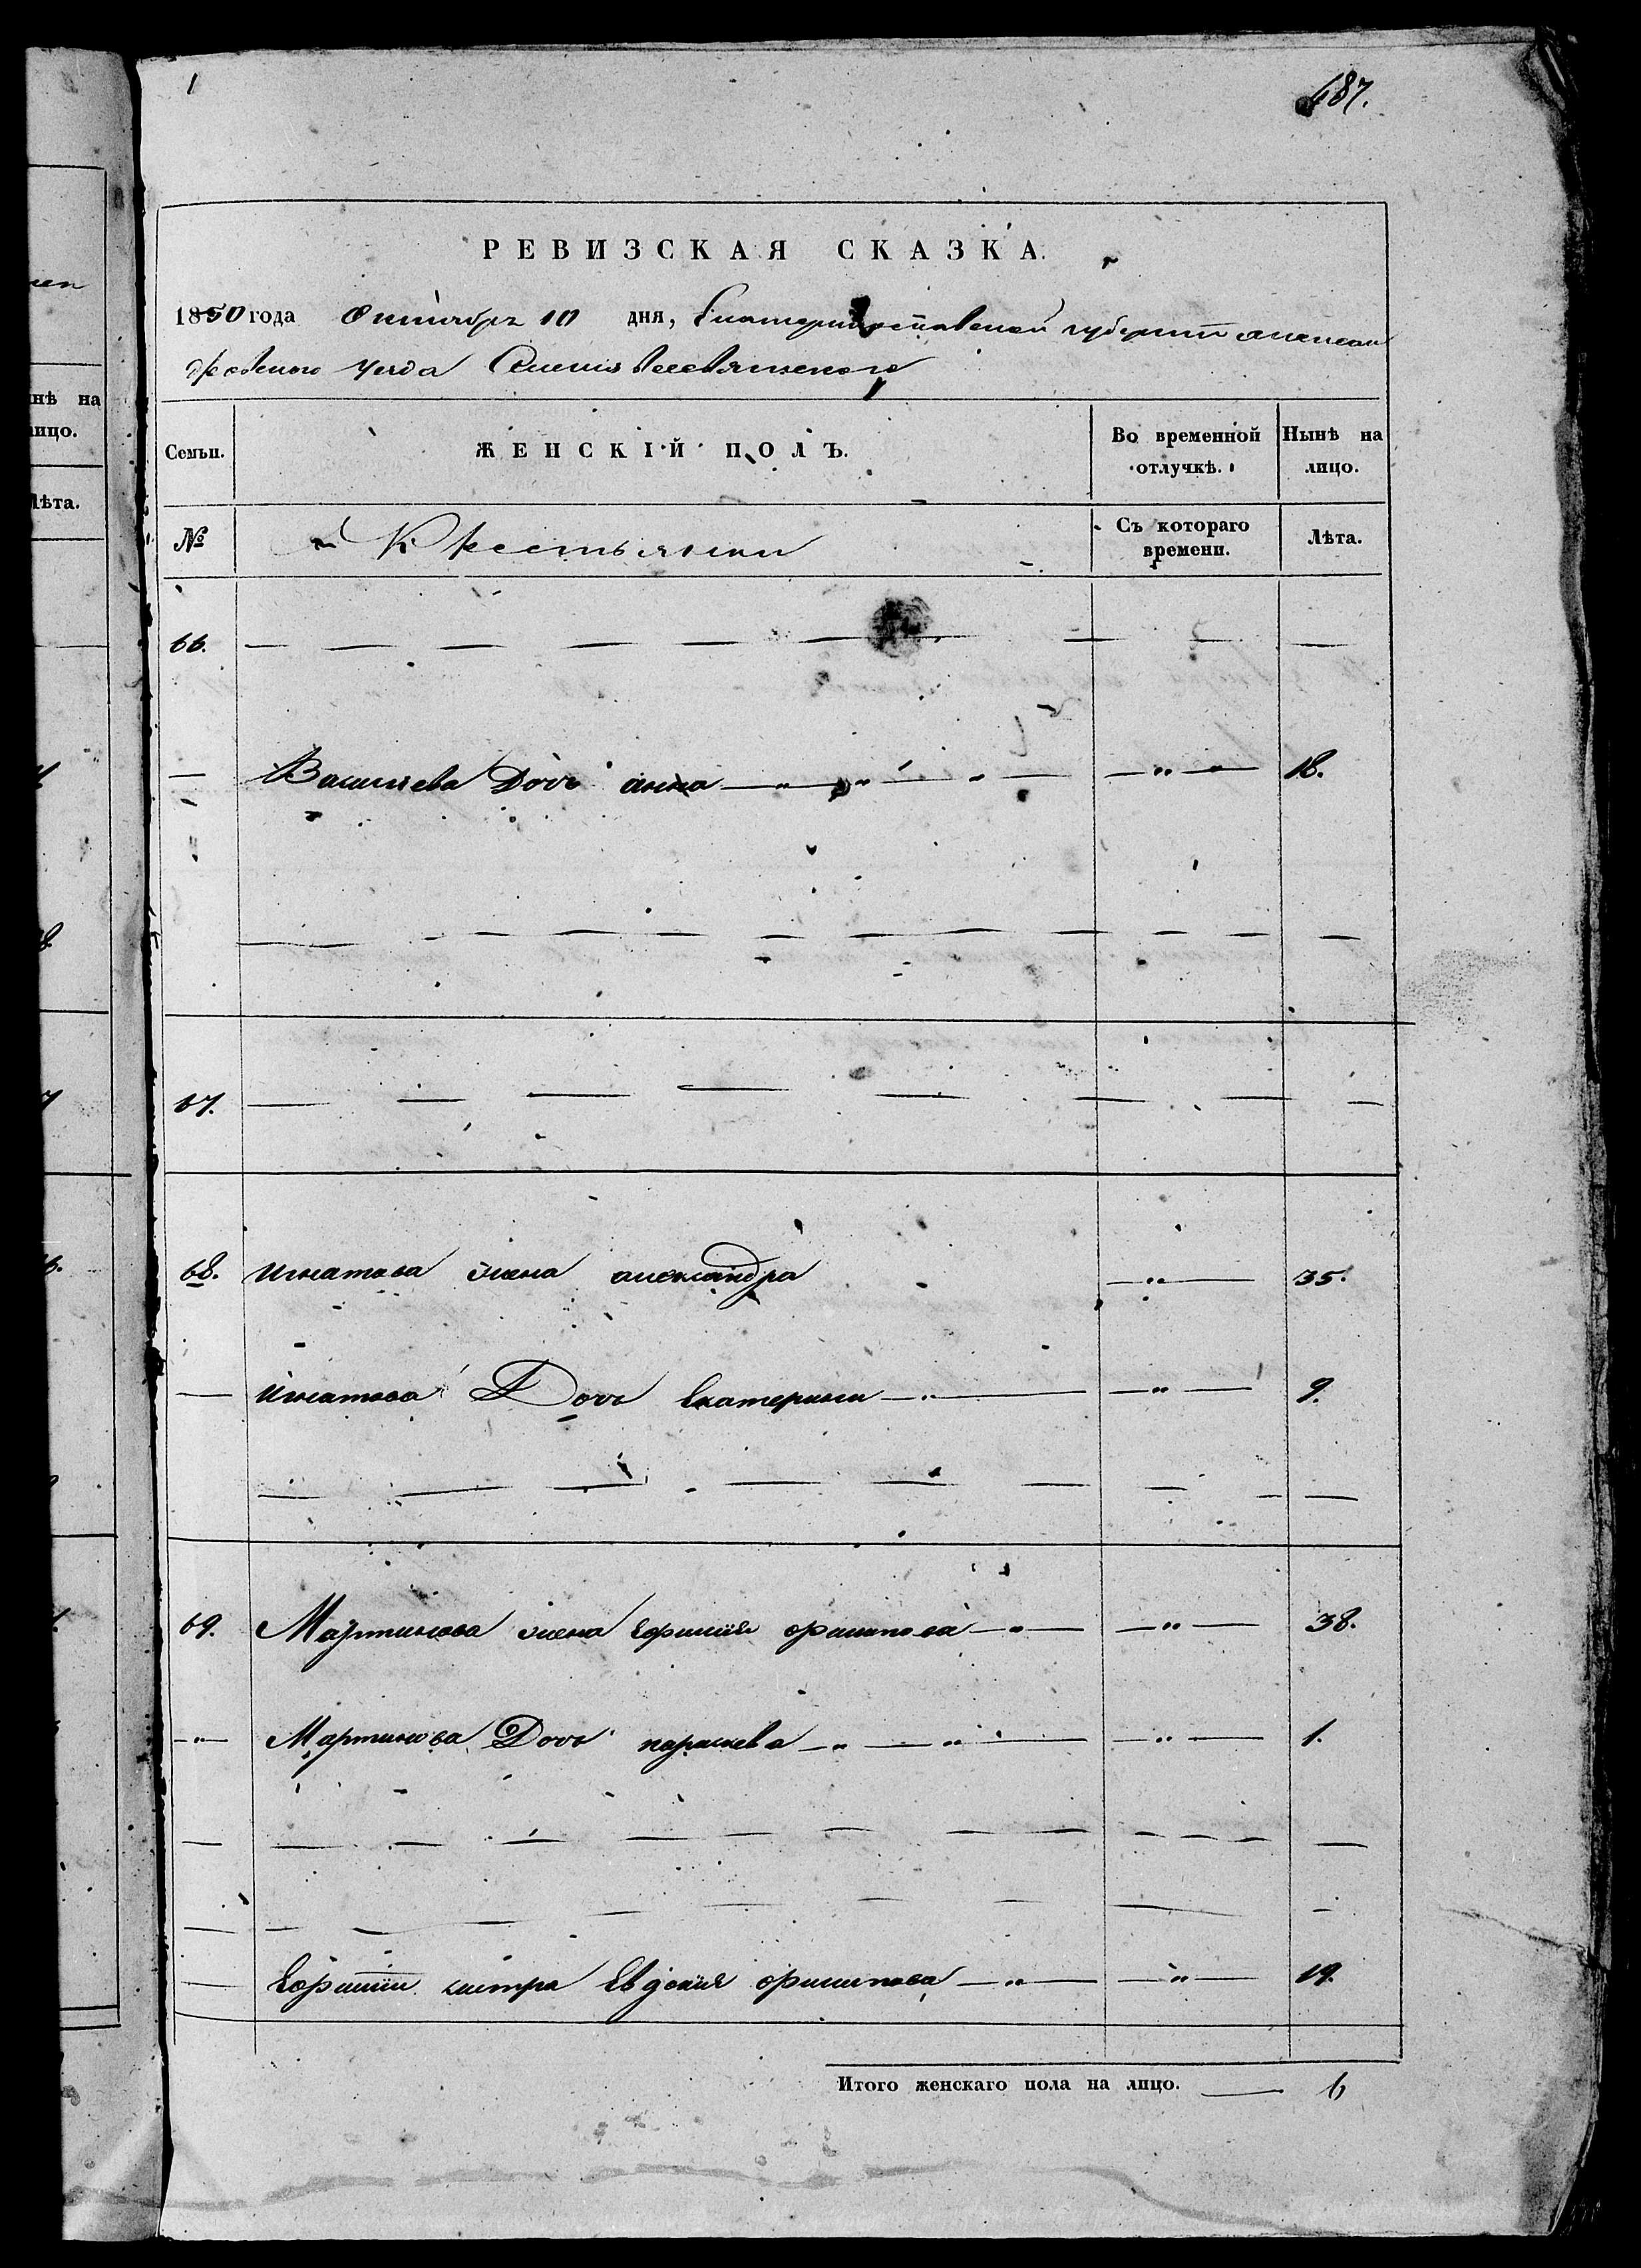 1
487.
РЕВИЗСКАЯ СКАЗКА.
1850 года Октября 10 дня, Екатеринославской губернии Алексан
дровского уезда Селения Всесвятского
Семьи.
ЖЕНСКІЙ ПОЛЪ.
Во временной
отлучкѣ.
Нынѣ на
лицо.
№
Крестьянки
Съ котораго
времени.
Лѣта.
66.
Васильева Дочь анна 18.
67.
68. Игнатова жена александра 35.
Игнатова Дочь Екатерина 9.
69. Мартинова жена Ефимия филипова 38.
Мартинова Дочь параскева 1.
Ефимии систра Евдокия филипова 19.
Итого женскаго пола на лицо. 6
нѣ на
ицо.
ѣта.